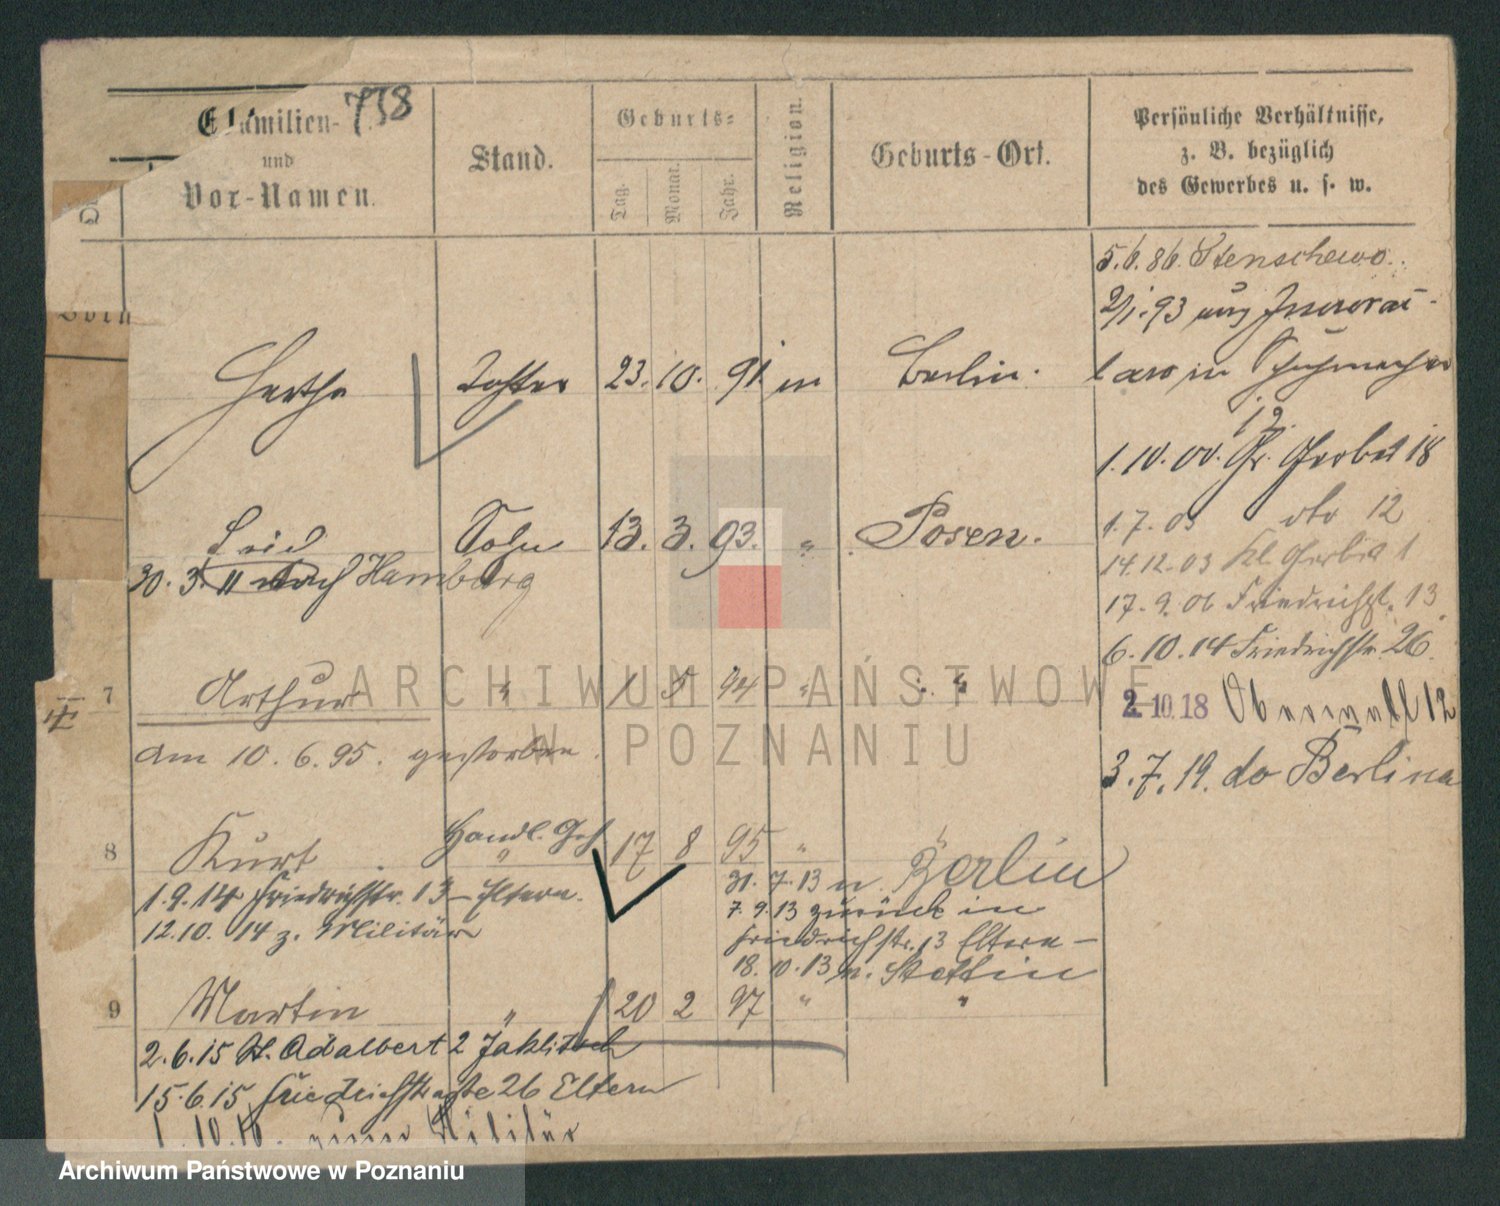 Familien- 758
und
Vor-Namen.
Stand.
Geburts-
Tag.
Monat.
Jahr.
Religion.
Geburts-Ort.
Persönliche Verhältnisse,
z. B. bezüglich
des Gewerbes u. s. w.
5.6.86. Stenschewo.
2/1.93 aus Inowraz-
law in Schuhmacher
12.
Hertha Tochter 23. 10. 91. m Berlin.
1.10.00. Gr. Gerberst 18
1.7.03 dto 12
Sohn 13. 3. 93. " Posen.
30. 3. 11 nach Hamburg
14.12.03 Kl. Gerberst 1
17.9.06 Friedrichst. 13.
6.10.14 Friedrichstr. 26.
7 Arthur " 1 5 94 " "
2.10.18 Oberwall 12
am 10.6.95. gestorben.
3.7.19. do Berlin
8 Kurt Handl. Geh. " 17 8 95 "
31.7.13 n. Berlin
1.9.14 Friedrichstr. 13 - Eltern.
7.9.13 zurück in
12.10.14 z. Militär
Friedrichstr. 13 Eltern -
18.10.13 n. Stettin
9 Martin " 20 2 97 " "
2.6.15 St. Adalbert 2 Jaklitsch
15.6.15 Friedrichstraße 26 Eltern
zum Militär
ARCHIWUM PAŃSTWOWE
W POZNANIU
Archiwum Państwowe w Poznaniu